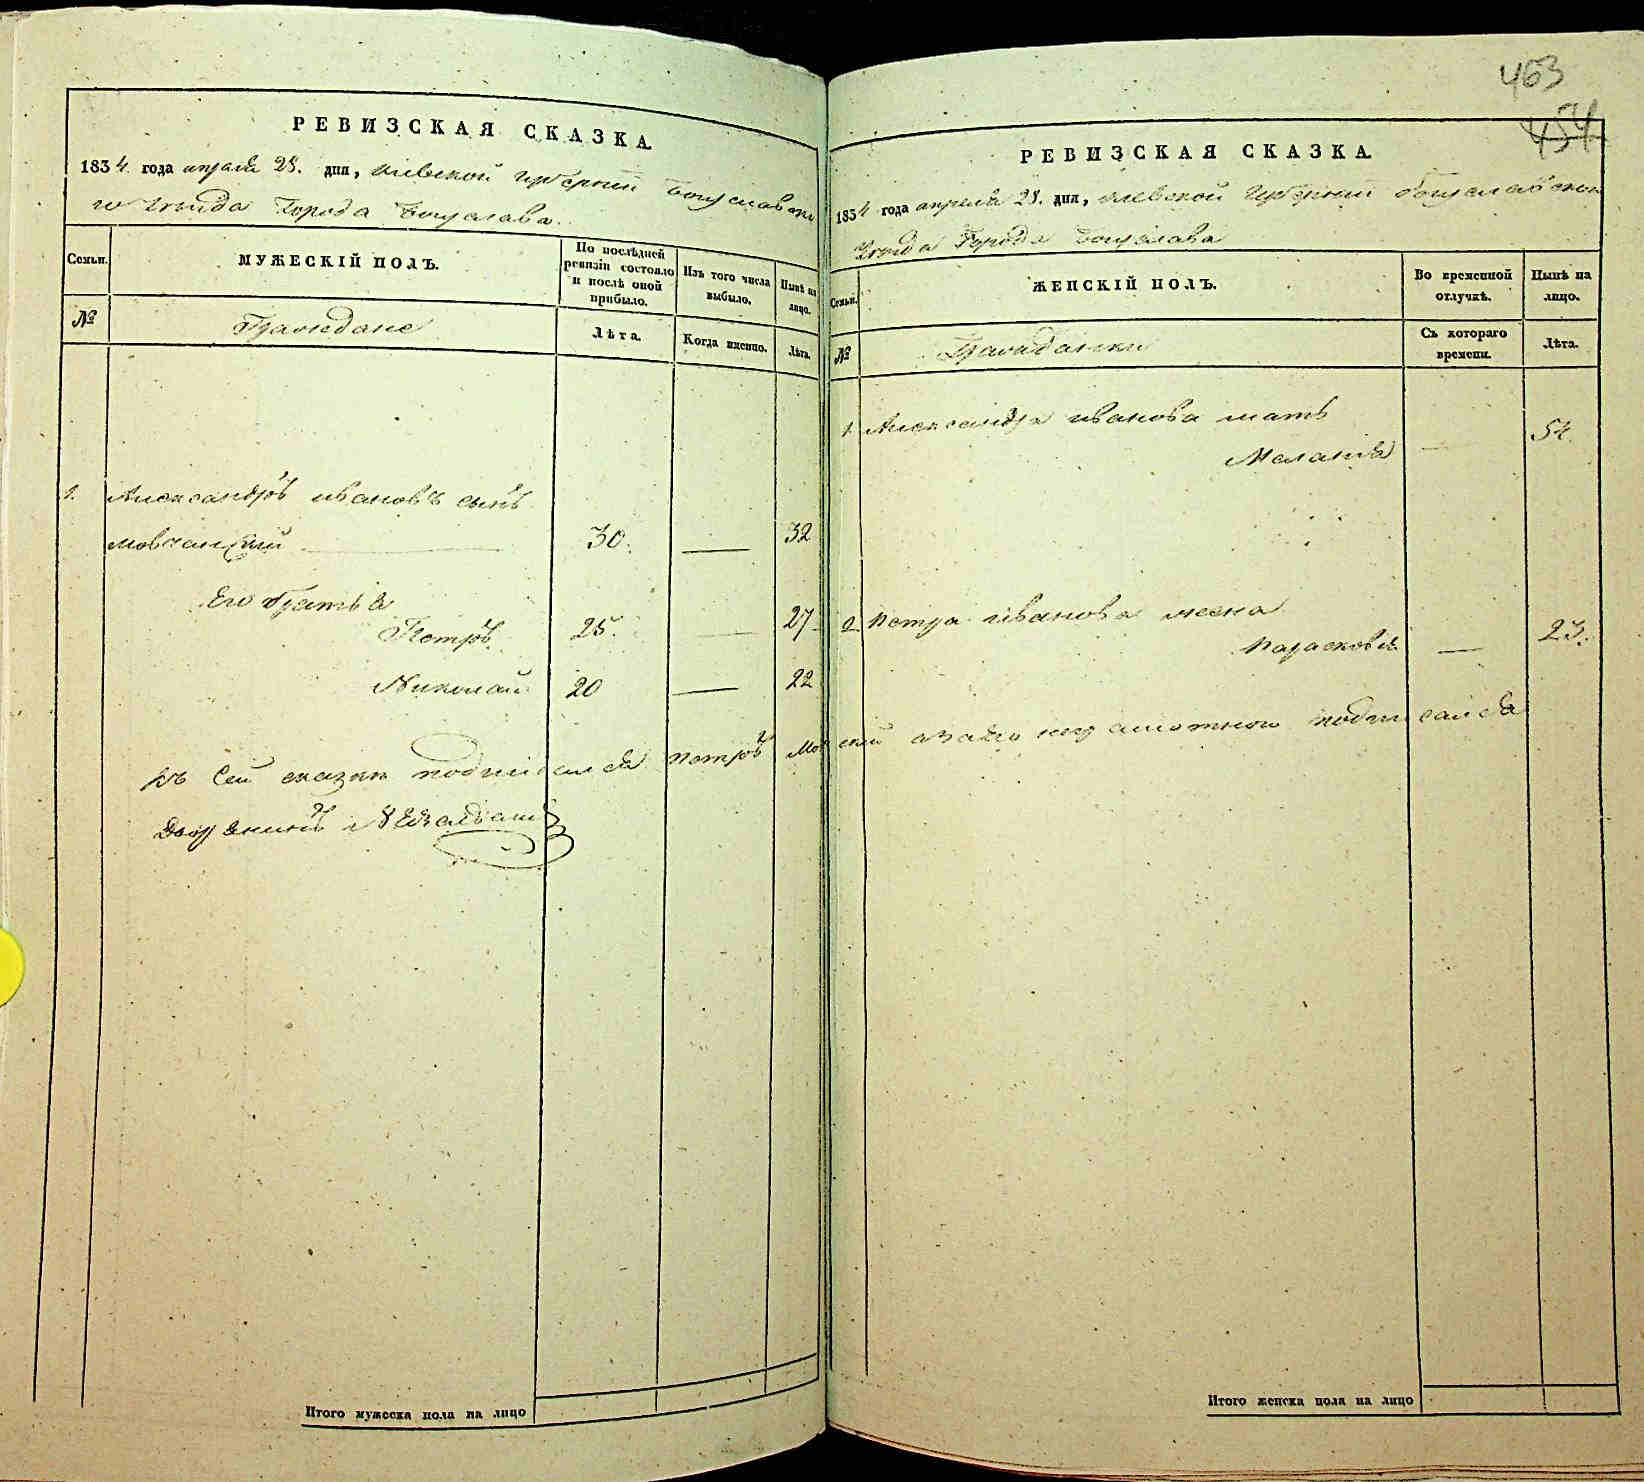 РЕВИЗСКАЯ СКАЗКА.
1834 года апреля 25. дня, Киевской Губернии Богуславска
го Уезда Города Богуслава.
Семьи.
МУЖЕСКІЙ ПОЛЪ.
По послѣдней ревизіи состояло и послѣ оной прибыло.
Изъ того числа выбыло.
Нынѣ на лицо.
№
Граждане
Лѣта.
Когда именно.
Лѣта.
1. Александръ Ивановъ сынъ
Мовчанскій 30. — 32
Его братья
Петръ 25. — 27
Николай 20 — 22
Къ сей сказки подписался Петръ
Дворянинъ
Итого мужеска пола на лицо
463
454
РЕВИЗСКАЯ СКАЗКА.
1834 года апреля 25. дня, Киевской Губернии Богуславского
Уезда Города Богуслава
Семьи.
ЖЕНСКІЙ ПОЛЪ.
Во временной отлучкѣ.
Нынѣ на лицо.
№
Гражданки
Съ котораго времени.
Лѣта.
1. Александра Иванова мать
Мелания — 54.
2 Петра Иванова жена
Парасковья — 23.
неграмотного подписался
Итого женска пола на лицо